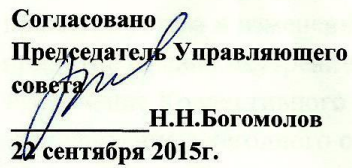 Согласовано
Председатель Управляющего
совета
____________Н.Н.Богомолов
22 сентября 2015г.